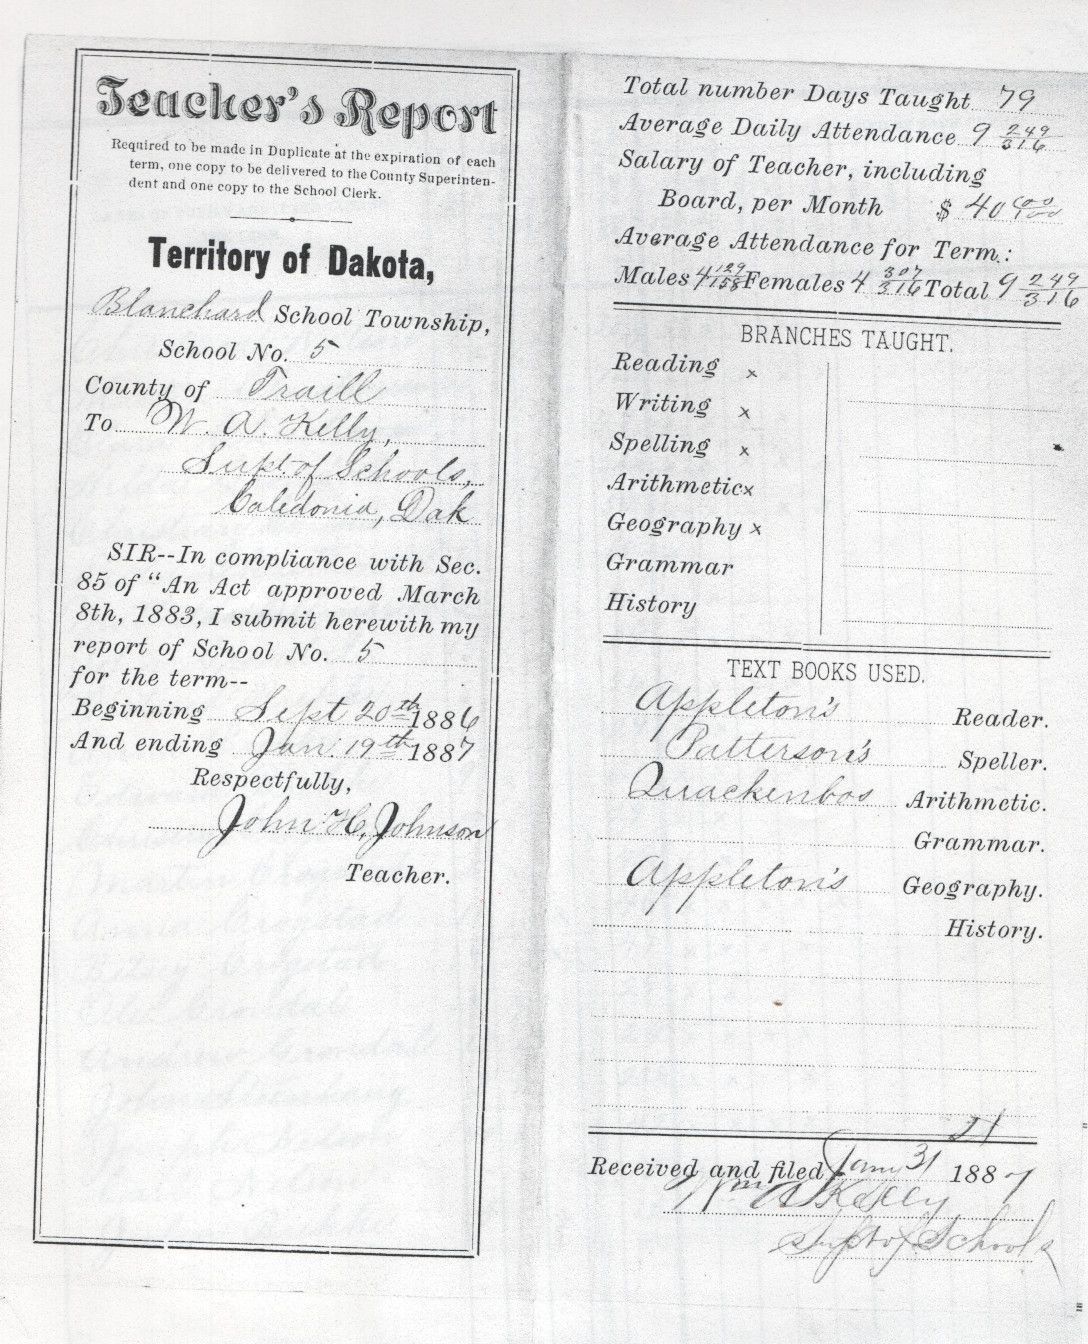 Teacher's Report
Required to be made in Duplicate at the expiration of each
term, one copy to be delivered to the County Superinten-
dent and one copy to the School Clerk.
Territory of Dakota,
Blanchard School Township,
School No. 5
County of Traill
To W. A. Kelly,
Supt. of Schools,
Caledonia, Dak
SIR--In compliance with Sec.
85 of "An Act approved March
8th, 1883, I submit herewith my
report of School No. 5
for the term--
Beginning Sept 20th 1886
And ending Jan. 19th 1887
Respectfully,
John H. Johnson
Teacher.
Total number Days Taught 79
Average Daily Attendance 9 249/316
Salary of Teacher, including
Board, per Month $ 40 00/100
Average Attendance for Term:
Males 4 129/158 Females 4 307/316 Total 9 249/316
BRANCHES TAUGHT.
Reading x
Writing x
Spelling x
Arithmetic x
Geography x
Grammar
History
TEXT BOOKS USED.
Appleton's Reader.
Patterson's Speller.
Quackenbos Arithmetic.
Grammar.
Appleton's Geography.
History.
21
Received and filed Jany 31 1887
Wm A Kelly
Supt of Schools